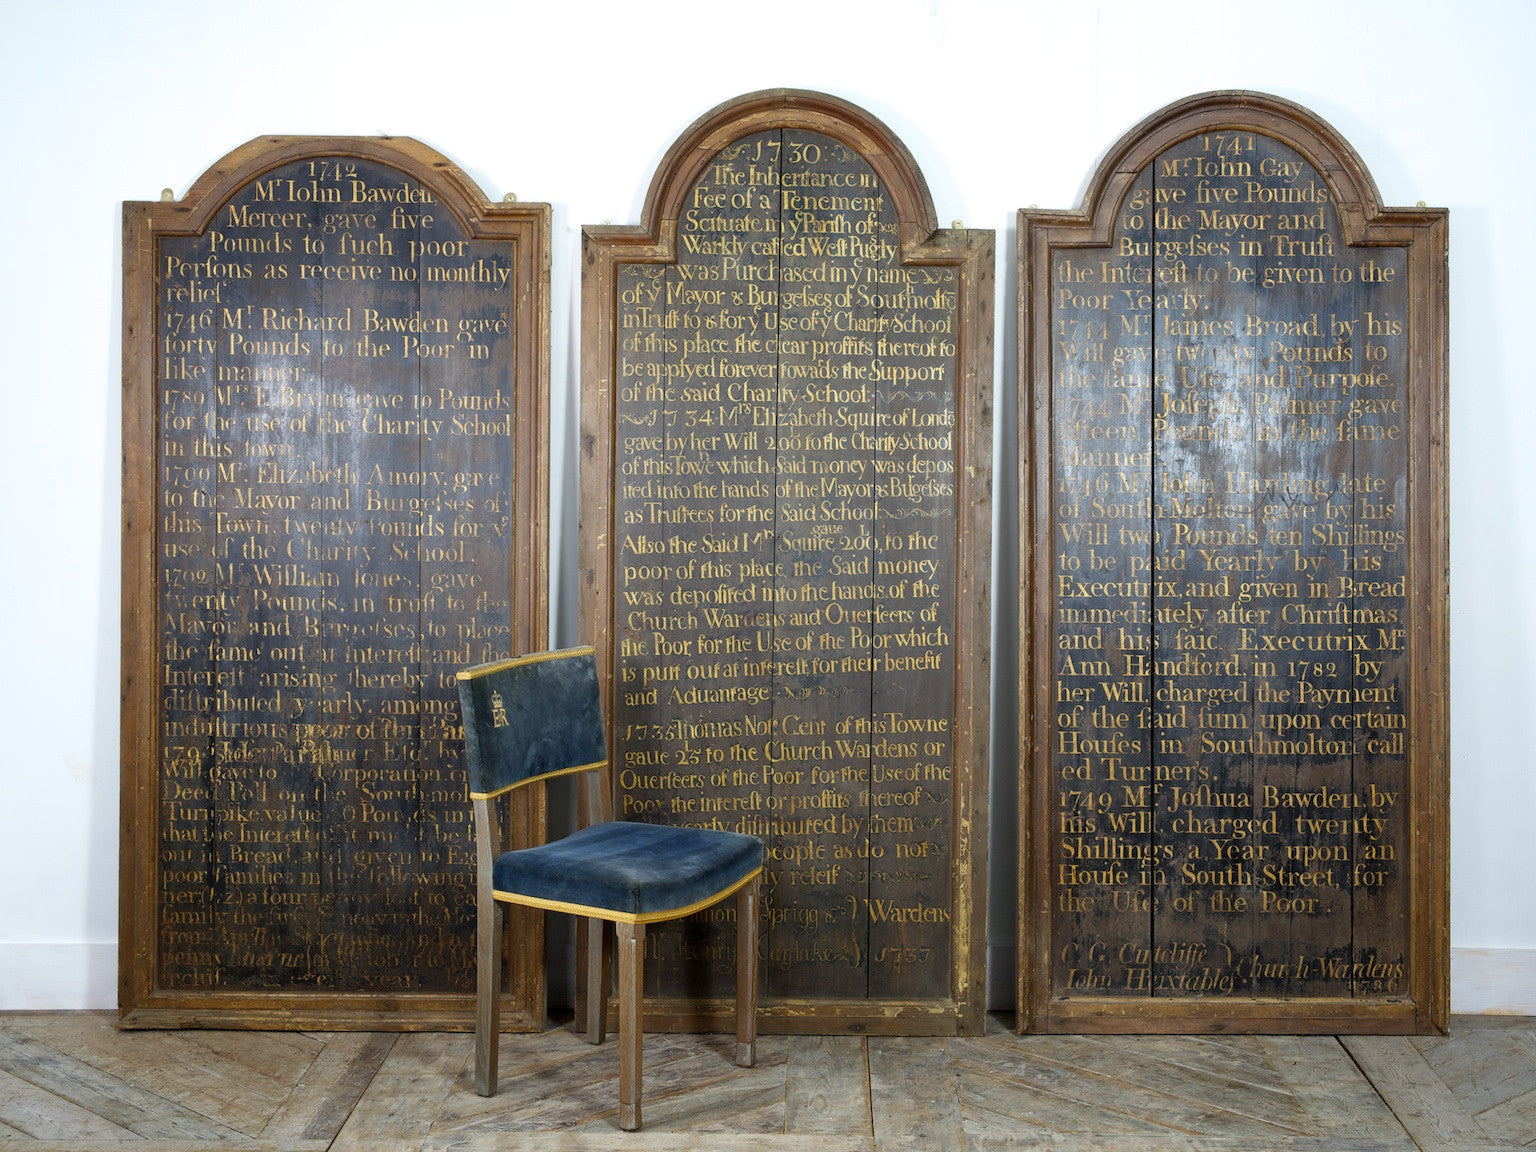 1742
Mr Iohn Bawden
Mercer, gave five
Pounds to ſuch poor
Perſons as receive no monthly
relief.
1746 Mr. Richard Bawden gave
forty Pounds to the Poor in
like manner
1789 Mrs E. gave 10 Pounds
for the use of the Charity School
in this town.
1790 Mrs. Elizabeth Amory, gave
to the Mayor and Burgeſses of
this Town, twenty Pounds for ye
use of the Charity School.
1792 Mr. William Jones, gave
twenty Pounds, in truſt to the
Mayor and Burgeſses, to place
the ſame out at Intereſt and the
Intereſt arising thereby to
diſtributed yearly, among
induſtrious poor of
Palmer Eſqr by
Will gave to Corporation
Deed Poll on the Southmol
Turnpike value
that the Intereſt of it
out in Bread, and given to
poor families in the following
family the
from
penny
relief year
1730
The Inheritance in
Fee of a Tenement
Scituate in ye Pariſh of
Warkly called Weſt Pugly
was Purchased in ye name
of ye Mayor & Burgeſses of Southmolto
in Truſt to & for ye Use of ye Charity School
of this place, the clear proffits thereof to
be applyed forever towads the Support
of the said Charity School:
1734 Mrs Elizabeth Squire of Londo
gave by her Will 200 to the Charity School
of this Towne which Said money was depos
ited into the hands of the Mayor & Bugeſses
as Truſtees for the Said School
Allso the Said Mrs Squire gaue 200, to the
poor of this place, the Said money
was depoſited into the hands of the
Church Wardens and Ouerſeers of
the Poor, for the Use of the Poor which
is putt out at intereſt for their benefit
and Aduantage
1735 Thomas Not Gent of this Towne
gaue 25 to the Church Wardens or
Ouerſeers of the Poor for the Use of the
Poor the intereſt or proffits thereof
yearly diſtributed by them
people as do not
relief
Sprigg Wardens
Mr. Henry 1737
1741
Mr. Iohn Gay
gave five Pounds
to the Mayor and
Burgeſses in Truſt
the Intereſt to be given to the
Poor Yearly.
1744 Mr. James Broad, by his
Will gave twenty Pounds to
the ſame Uſe and Purpoſe.
1744 Mr. Joſeph Palmer gave
fifteen Pounds in the ſame
Manner
1746 Mr. John Harding, late
of South Molton gave by his
Will two Pounds ten Shillings
to be paid Yearly by his
Executrix, and given in Bread
immediately after Chriſtmas
and his ſaid Executrix Mrs.
Ann Handford, in 1782 by
her Will, charged the Payment
of the ſaid ſum upon certain
Houſes in Southmolton call
ed Turner's.
1749 Mr. Joſhua Bawden, by
his Will, charged twenty
Shillings a Year upon an
Houſe in South-Street, for
the Uſe of the Poor.
C. G. Cutcliffe
Iohn Huxtable Church-Wardens
1786
ER